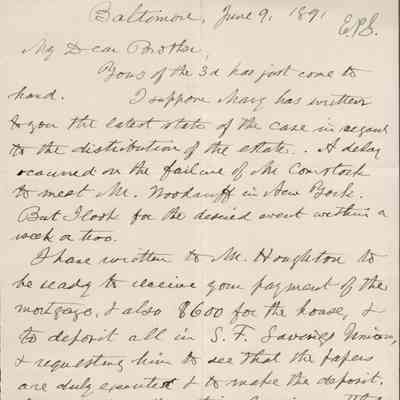 Baltimore, June 9, 1891
E.P.S.
My Dear Brother,
Yours of the 3d has just come to
hand. I suppose Mary has written
to you the latest state of the case in regard
to the distribution of the estate. A delay
occurred on the failure of Mr. Comstock
to meet Mr. Woodruff in New York.
But I look for the desired event within a
week or two.
I have written to Mr. Houghton to
be ready to receive your payment of the
mortgage, & also $600 for the house, &
to deposit all in S. F. Savings Union,
& requesting him to see that the papers
are duly executed & to make the deposit.